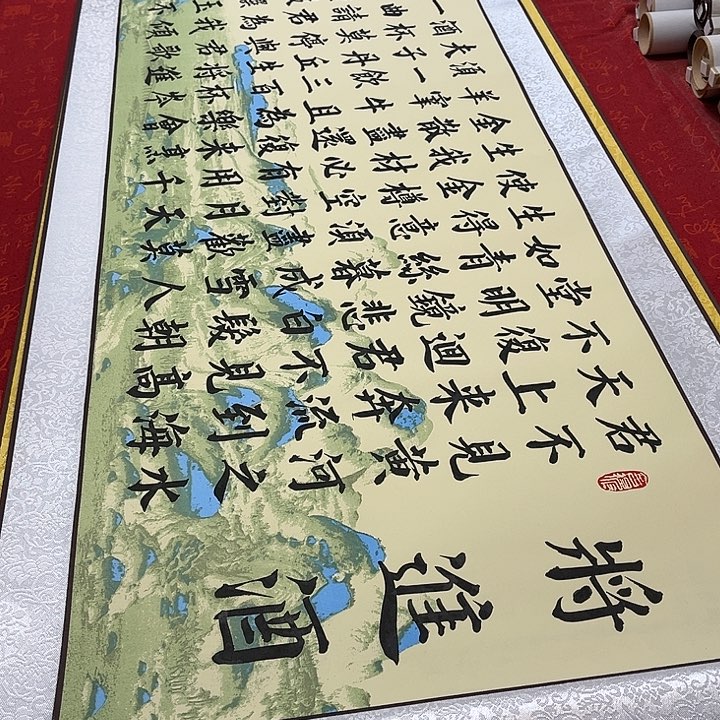 將進酒
君不見黃河之水
天上來奔流到海
不復迴君不見高
堂明鏡悲白髮朝
如青絲暮成雪人
生得意須盡歡莫
使金樽空對月天
生我材必有用千
金散盡還復來烹
羊宰牛且為樂會
須一飲三百杯岑
夫子丹丘生將進
酒杯莫停與君歌
一曲請君為我傾